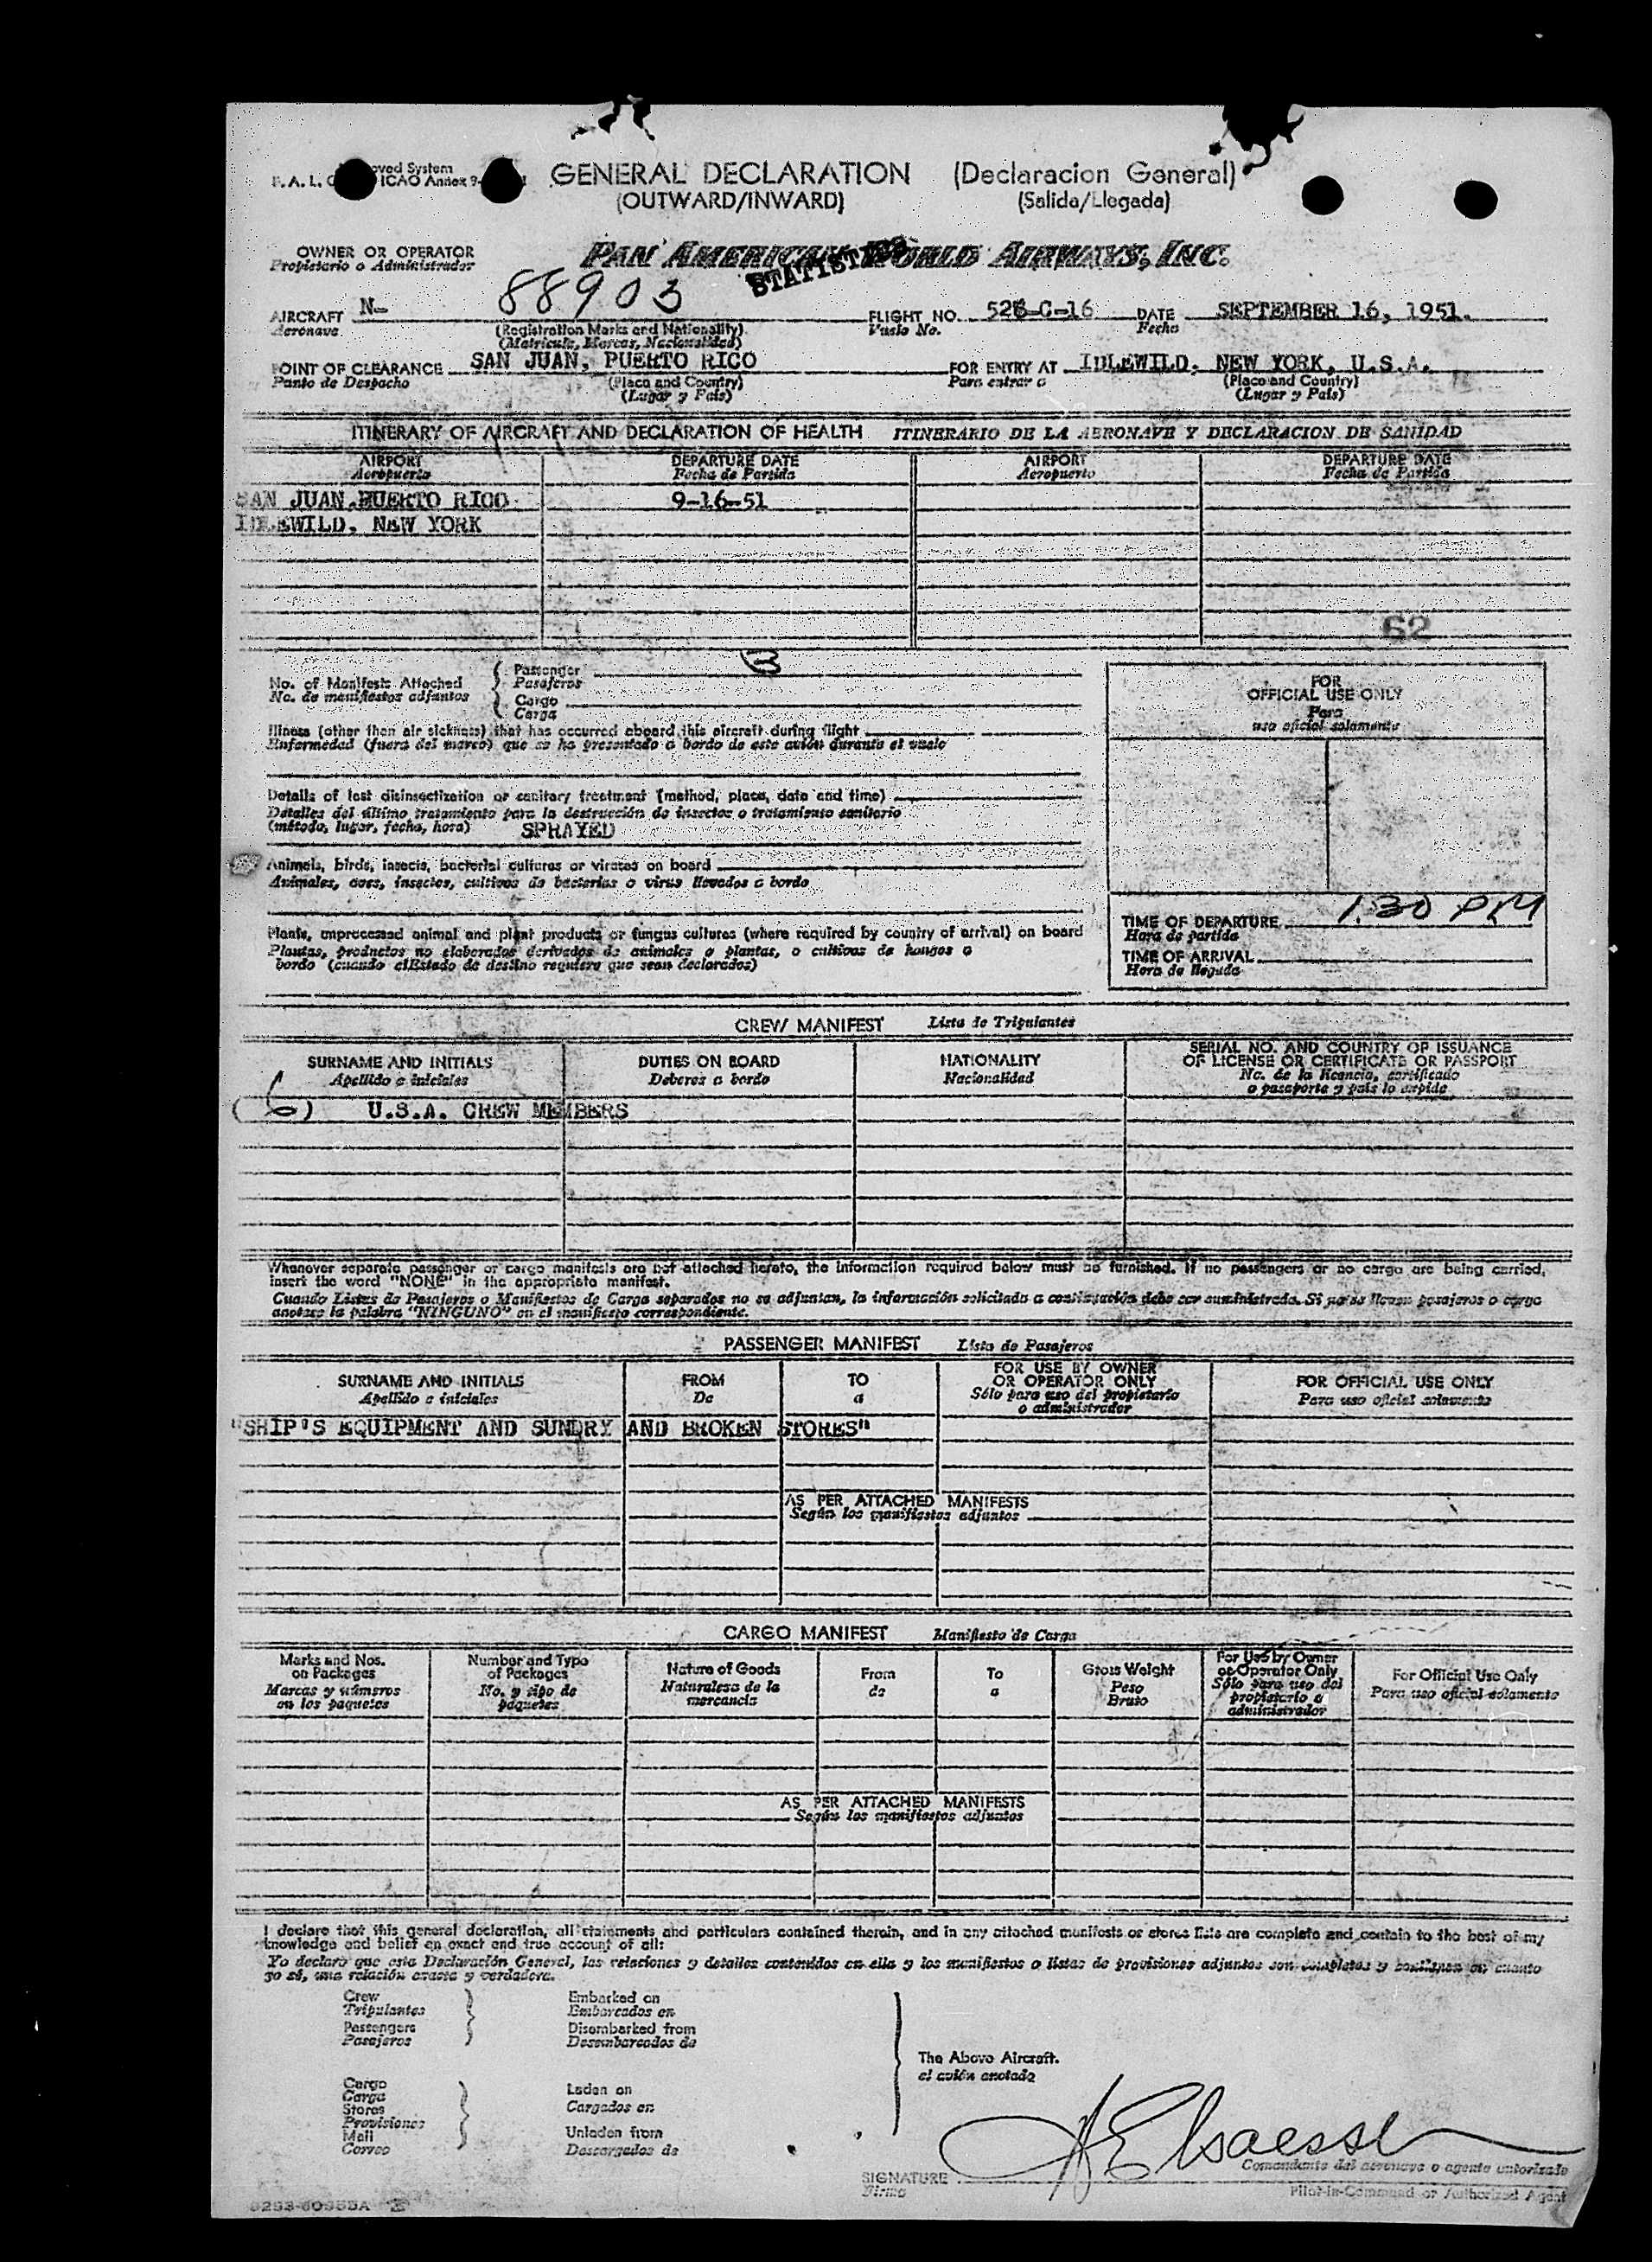 GENERAL DECLARATION (Declaracion General)
(OUTWARD/INWARD) (Salida/Llegada)
OWNER OR OPERATOR
Propietario o Administrador
PAN AMERICAN WORLD AIRWAYS, INC.
STATISTICS
AIRCRAFT N- 88903 FLIGHT NO. DATE SEPTEMBER 16, 1951.
Aeronave (Registration Marks and Nationality) Vuelo No. Fecha
(Matricula, Marcas, Nacionalidad)
POINT OF CLEARANCE SAN JUAN, PUERTO RICO FOR ENTRY AT IDLEWILD, NEW YORK, U.S.A.
Punto de Despacho (Place and Country) Para entrar a (Place and Country)
(Lugar y País) (Lugar y País)
ITINERARY OF AIRCRAFT AND DECLARATION OF HEALTH ITINERARIO DE LA AERONAVE Y DECLARACION DE SANIDAD
AIRPORT DEPARTURE DATE AIRPORT DEPARTURE DATE
Aeropuerto Fecha de Partida Aeropuerto Fecha de Partida
SAN JUAN, PUERTO RICO 9-16-51
IDLEWILD, NEW YORK
62
No. of Manifests Attached
No. de manifiestos adjuntos
Passenger 3
Pasajeros
Cargo
Carga
FOR
OFFICIAL USE ONLY
Para
uso oficial solamente
Illness (other than air sickness) that has occurred aboard this aircraft during flight
Enfermedad (fuera del mareo) que se ha presentado a bordo de este avión durante el vuelo
Details of last disinsectization or sanitary treatment (method, place, date and time)
Detalles del último tratamiento para la destrucción de insectos o tratamiento sanitario
(método, lugar, fecha, hora) SPRAYED
Animals, birds, insects, bacterial cultures or viruses on board
Animales, aves, insectos, cultivos de bacterias o virus llevados a bordo
Plants, unprocessed animal and plant products or fungus cultures (where required by country of arrival) on board
Plantas, productos no elaborados derivados de animales o plantas, o cultivos de hongos a
bordo (cuando el Estado de destino requiera que sean declarados)
TIME OF DEPARTURE 1:30 PM
Hora de partida
TIME OF ARRIVAL
Hora de llegada
CREW MANIFEST Lista de Tripulantes
SURNAME AND INITIALS DUTIES ON BOARD NATIONALITY SERIAL NO. AND COUNTRY OF ISSUANCE
OF LICENSE OR CERTIFICATE OR PASSPORT
Apellido e iniciales Deberes a bordo Nacionalidad No. de la licencia, certificado
o pasaporte y país lo expide
(6) U.S.A. CREW MEMBERS
Whenever separate passenger or cargo manifests are not attached hereto, the information required below must be furnished. If no passengers or no cargo are being carried,
insert the word "NONE" in the appropriate manifest.
Cuando Listas de Pasajeros o Manifiestos de Carga separados no se adjuntan, la información solicitada a continuación debe ser suministrada. Si no se llevan pasajeros o carga
anotese la palabra "NINGUNO" en el manifiesto correspondiente.
PASSENGER MANIFEST Lista de Pasajeros
SURNAME AND INITIALS FROM TO FOR USE BY OWNER FOR OFFICIAL USE ONLY
OR OPERATOR ONLY
Apellido e iniciales De a Sólo para uso del propietario Para uso oficial solamente
o administrador
"SHIP'S EQUIPMENT AND SUNDRY AND BROKEN STORES"
AS PER ATTACHED MANIFESTS
Según los manifiestos adjuntos
CARGO MANIFEST Manifiesto de Carga
Marks and Nos. on Packages
Marcas y números en los paquetes
Number and Type of Packages
No. y tipo de paquetes
Nature of Goods
Naturaleza de la mercancia
From
de
To
a
Gross Weight
Peso Bruto
For Use by Owner or Operator Only
Sólo para uso del propietario o administrador
For Official Use Only
Para uso oficial solamente
AS PER ATTACHED MANIFESTS
Según los manifiestos adjuntos
I declare that this general declaration, all statements and particulars contained therein, and in any attached manifests or stores lists are complete and contain to the best of my
knowledge and belief an exact and true account of all:
Yo declaro que esta Declaración General, las relaciones y detalles contenidos en ella y los manifiestos o listas de provisiones adjuntos son completos y contienen en cuanto
yo sé, una relación exacta y verdadera.
Crew Embarked on
Tripulantes Embarcados en
Passengers Disembarked from
Pasajeros Desembarcados de
The Above Aircraft.
el avión anotado
Cargo Laden on
Carga Cargados en
Stores
Provisiones
Mail Unladen from
Correo Descargados de
SIGNATURE
Firma
Comandante del aeronave o agente autorizado
Pilot-in-Command or Authorized Agent